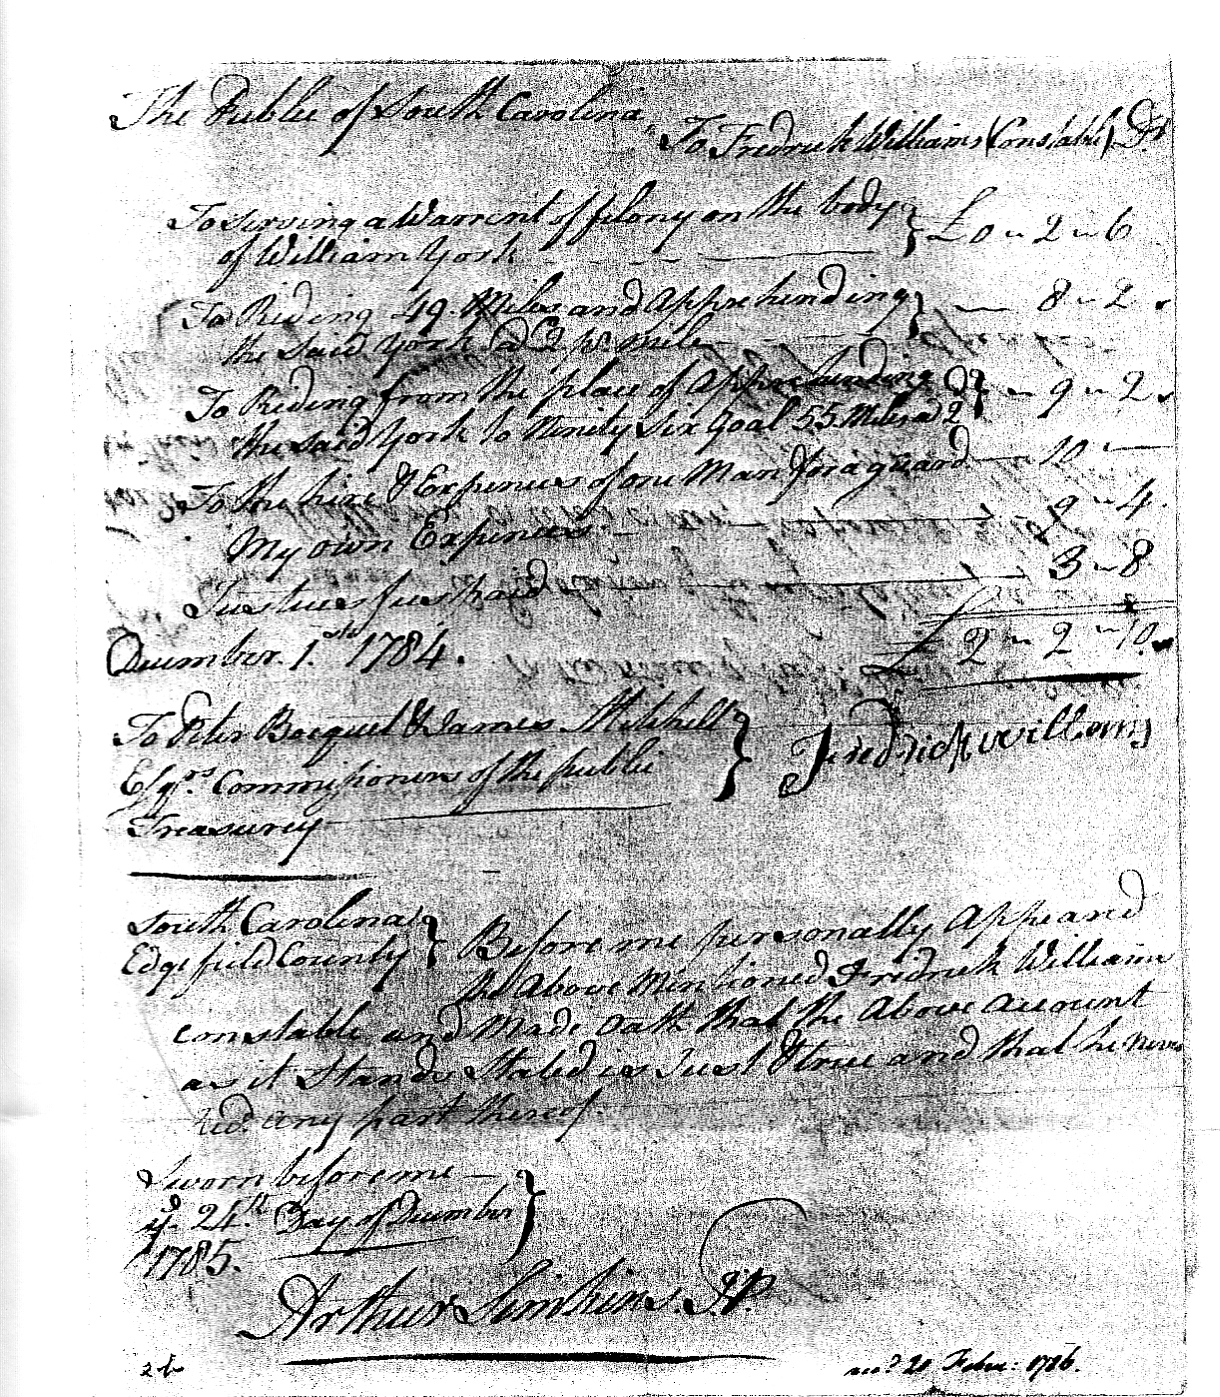 The Public of South Carolina
To Fredrick Williams (Constable) Dr
To serving a Warrent of felony on the body } £0 - 2 - 6
of William York
To Riding 49 Miles and Apprehending } 8 - 2
the said York @ 2 pr mile
To Riding from the place of Apprehending } 9 - 2
the said York to Ninity Six Goal 55 Miles @ 2
To the hire & Expences of one Man for a guard 10 -
My own Expences 9 - 4
Justices fees paid 3 - 8
December 1st 1784. £ 2 - 2 - 10
To Peter Bocquet & James Mitchell } Fredrick Williams
Esqrs. Commissioners of the public
Treasurey
South Carolina } Before me personally Appeard
Edgefield County
the Above Mentioned Fredrick Williams
constable and Made Oath that the Above Account
as it Stands Stated is Just & true and that he never
Recd any part thereof.
Sworn before me }
ye. 24th Day of December
1785.
Arthur Simkins J.P.
recd 20 Febru: 1786.